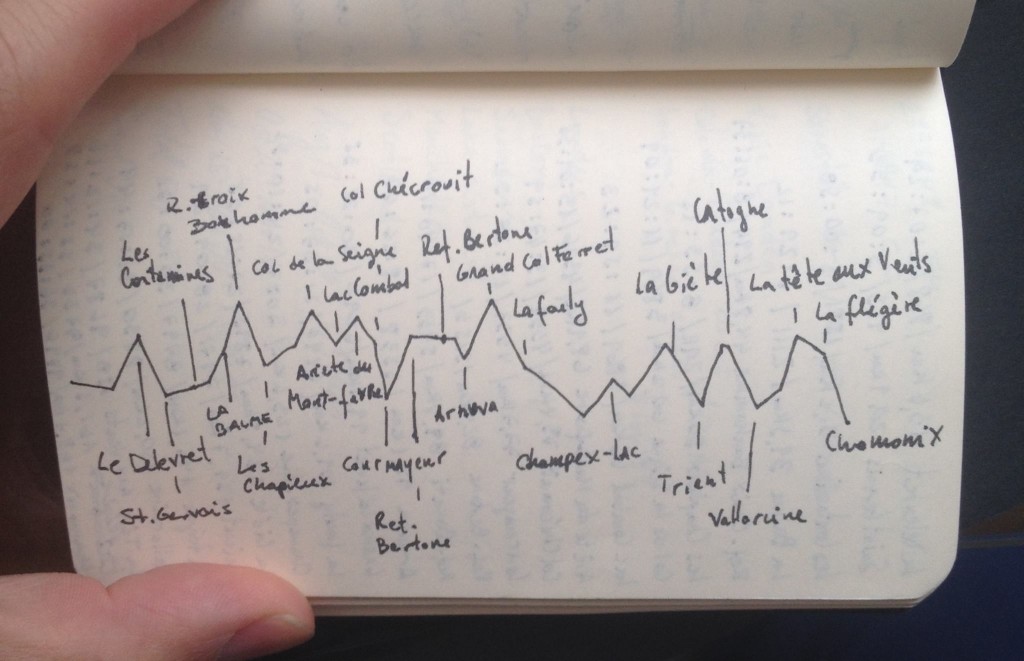 Col Chécrouit
R. Croix
Bonhomme
Catogne
Les
Contamines
Col de la Seigne
Ref. Bertone
Grand Col Ferret
La Giète
La tête aux Vents
Lac Combal
La fouly
La flégère
Arête du
Mont-favre
LA
BALME
Arnuva
Le Delevret
Les
Chapieux
Courmayeur
Champex-Lac
Chamonix
Trient
St. Gervais
Ref.
Bertone
Vallorcine